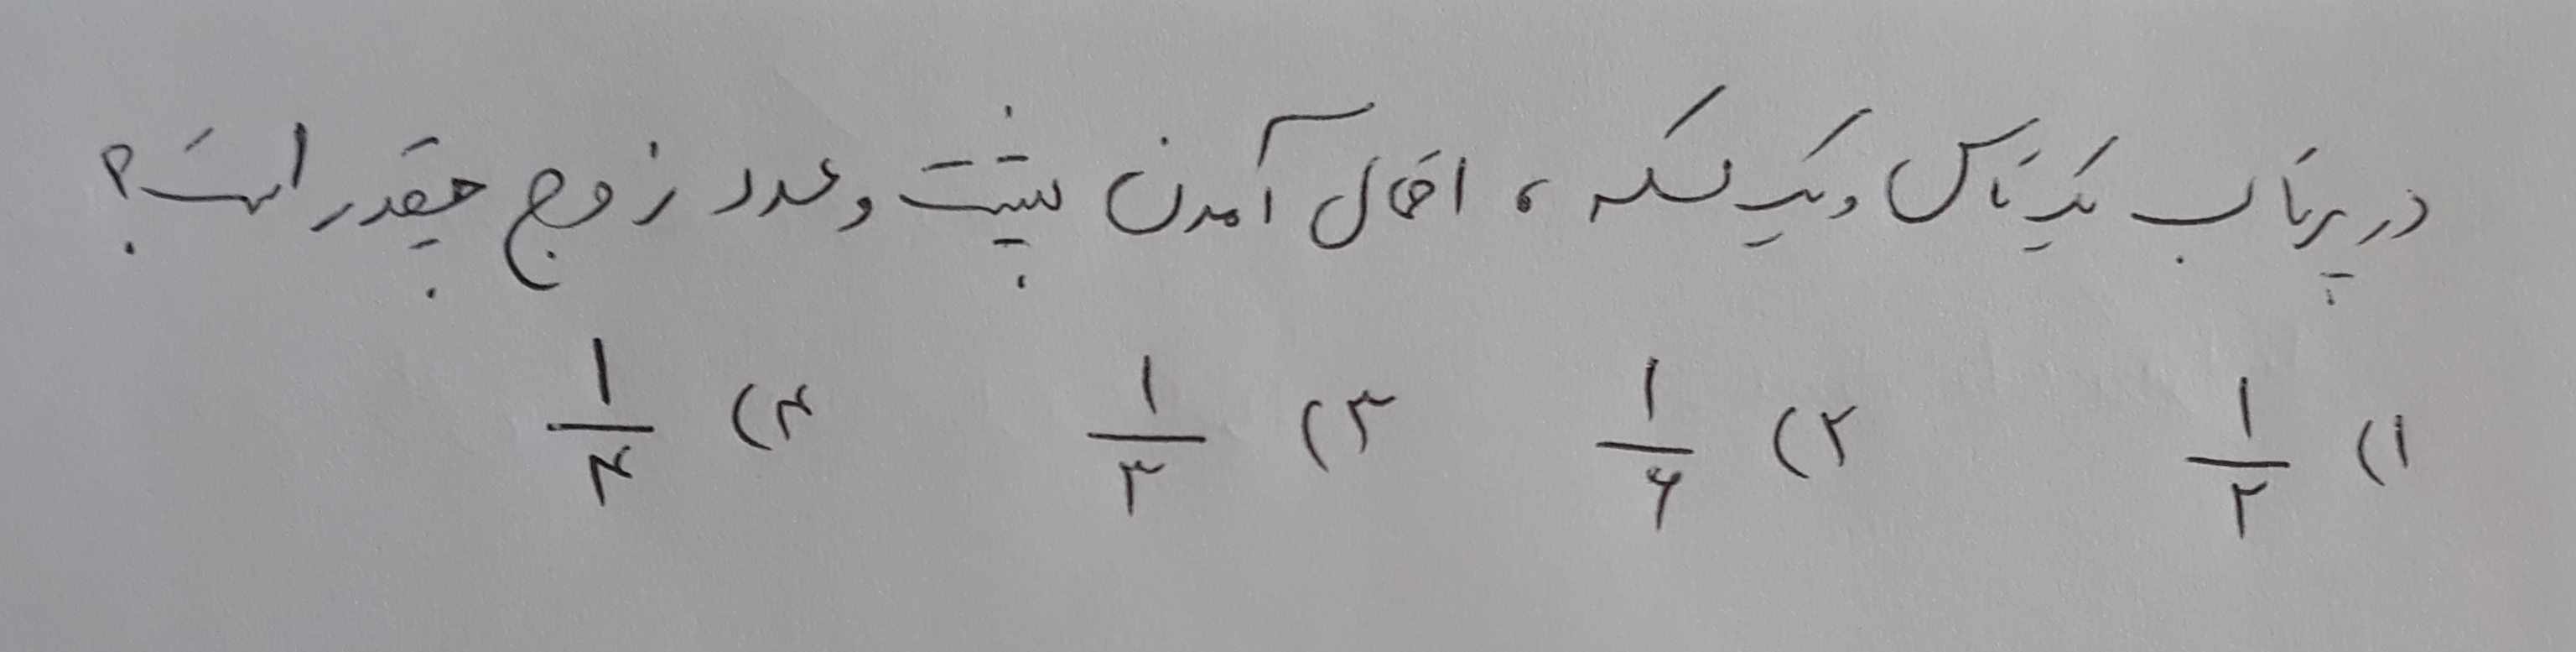 در پرتاب یک تاس و یک سکه ، احتمال آمدن پشت و عدد زوج چقدر است؟
۱) ۱/۲ ۲) ۱/۶ ۳) ۱/۳ ۴) ۱/۴